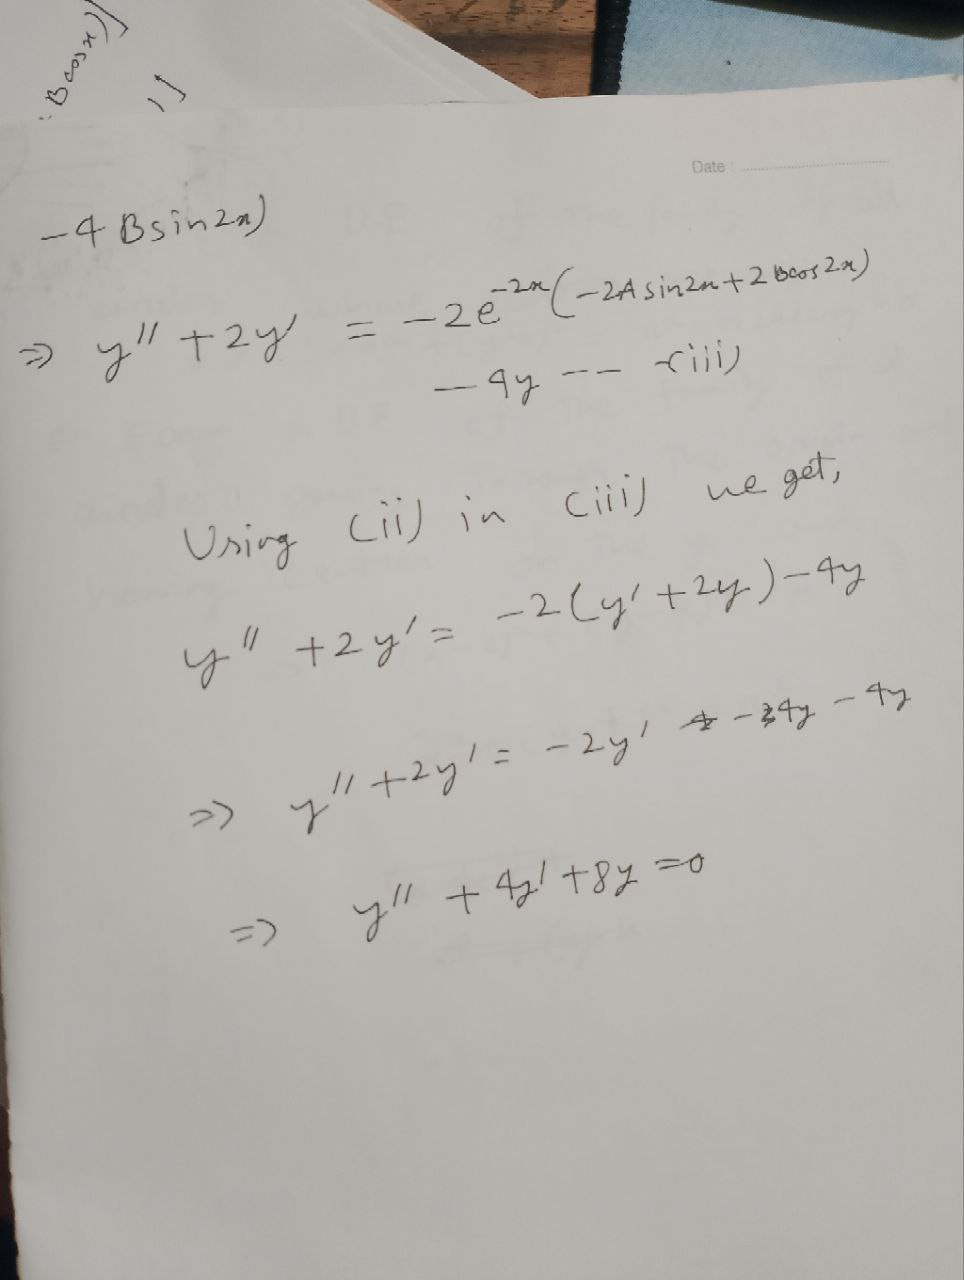 Bcosx)]
1]
Date :
-4 Bsin2x)
⇒ y'' + 2y' = -2e^{-2x}(-2A sin2x + 2Bcos2x)
-4y -- (iii)
Using (ii) in (iii) we get,
y'' + 2y' = -2(y' + 2y) - 4y
⇒ y'' + 2y' = -2y' - 4y - 4y
⇒ y'' + 4y' + 8y = 0